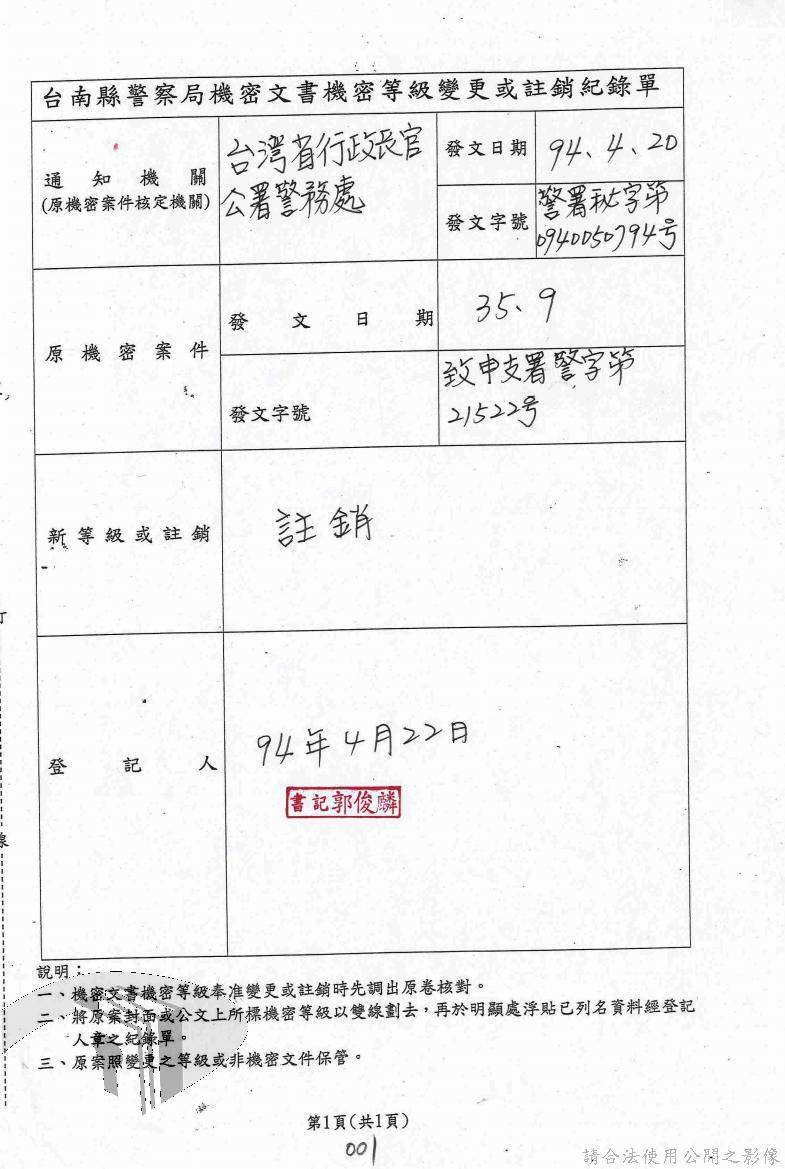 台南縣警察局機密文書機密等級變更或註銷紀錄單
通知機關
(原機密案件核定機關)
台灣省行政長官
公署警務處
發文日期
94、4、20
發文字號
警署秘字第
0940050794号
原機密案件
發文日期
35、9
發文字號
致申支署警字第
21522号
新等級或註銷
註銷
登記人
94年4月22日
書記郭俊麟
說明：
一、機密文書機密等級奉准變更或註銷時先調出原卷核對。
二、將原案封面或公文上所標機密等級以雙線劃去，再於明顯處浮貼已列名資料經登記
人章之紀錄單。
三、原案照變更之等級或非機密文件保管。
第1頁(共1頁)
001
請合法使用公開之影像